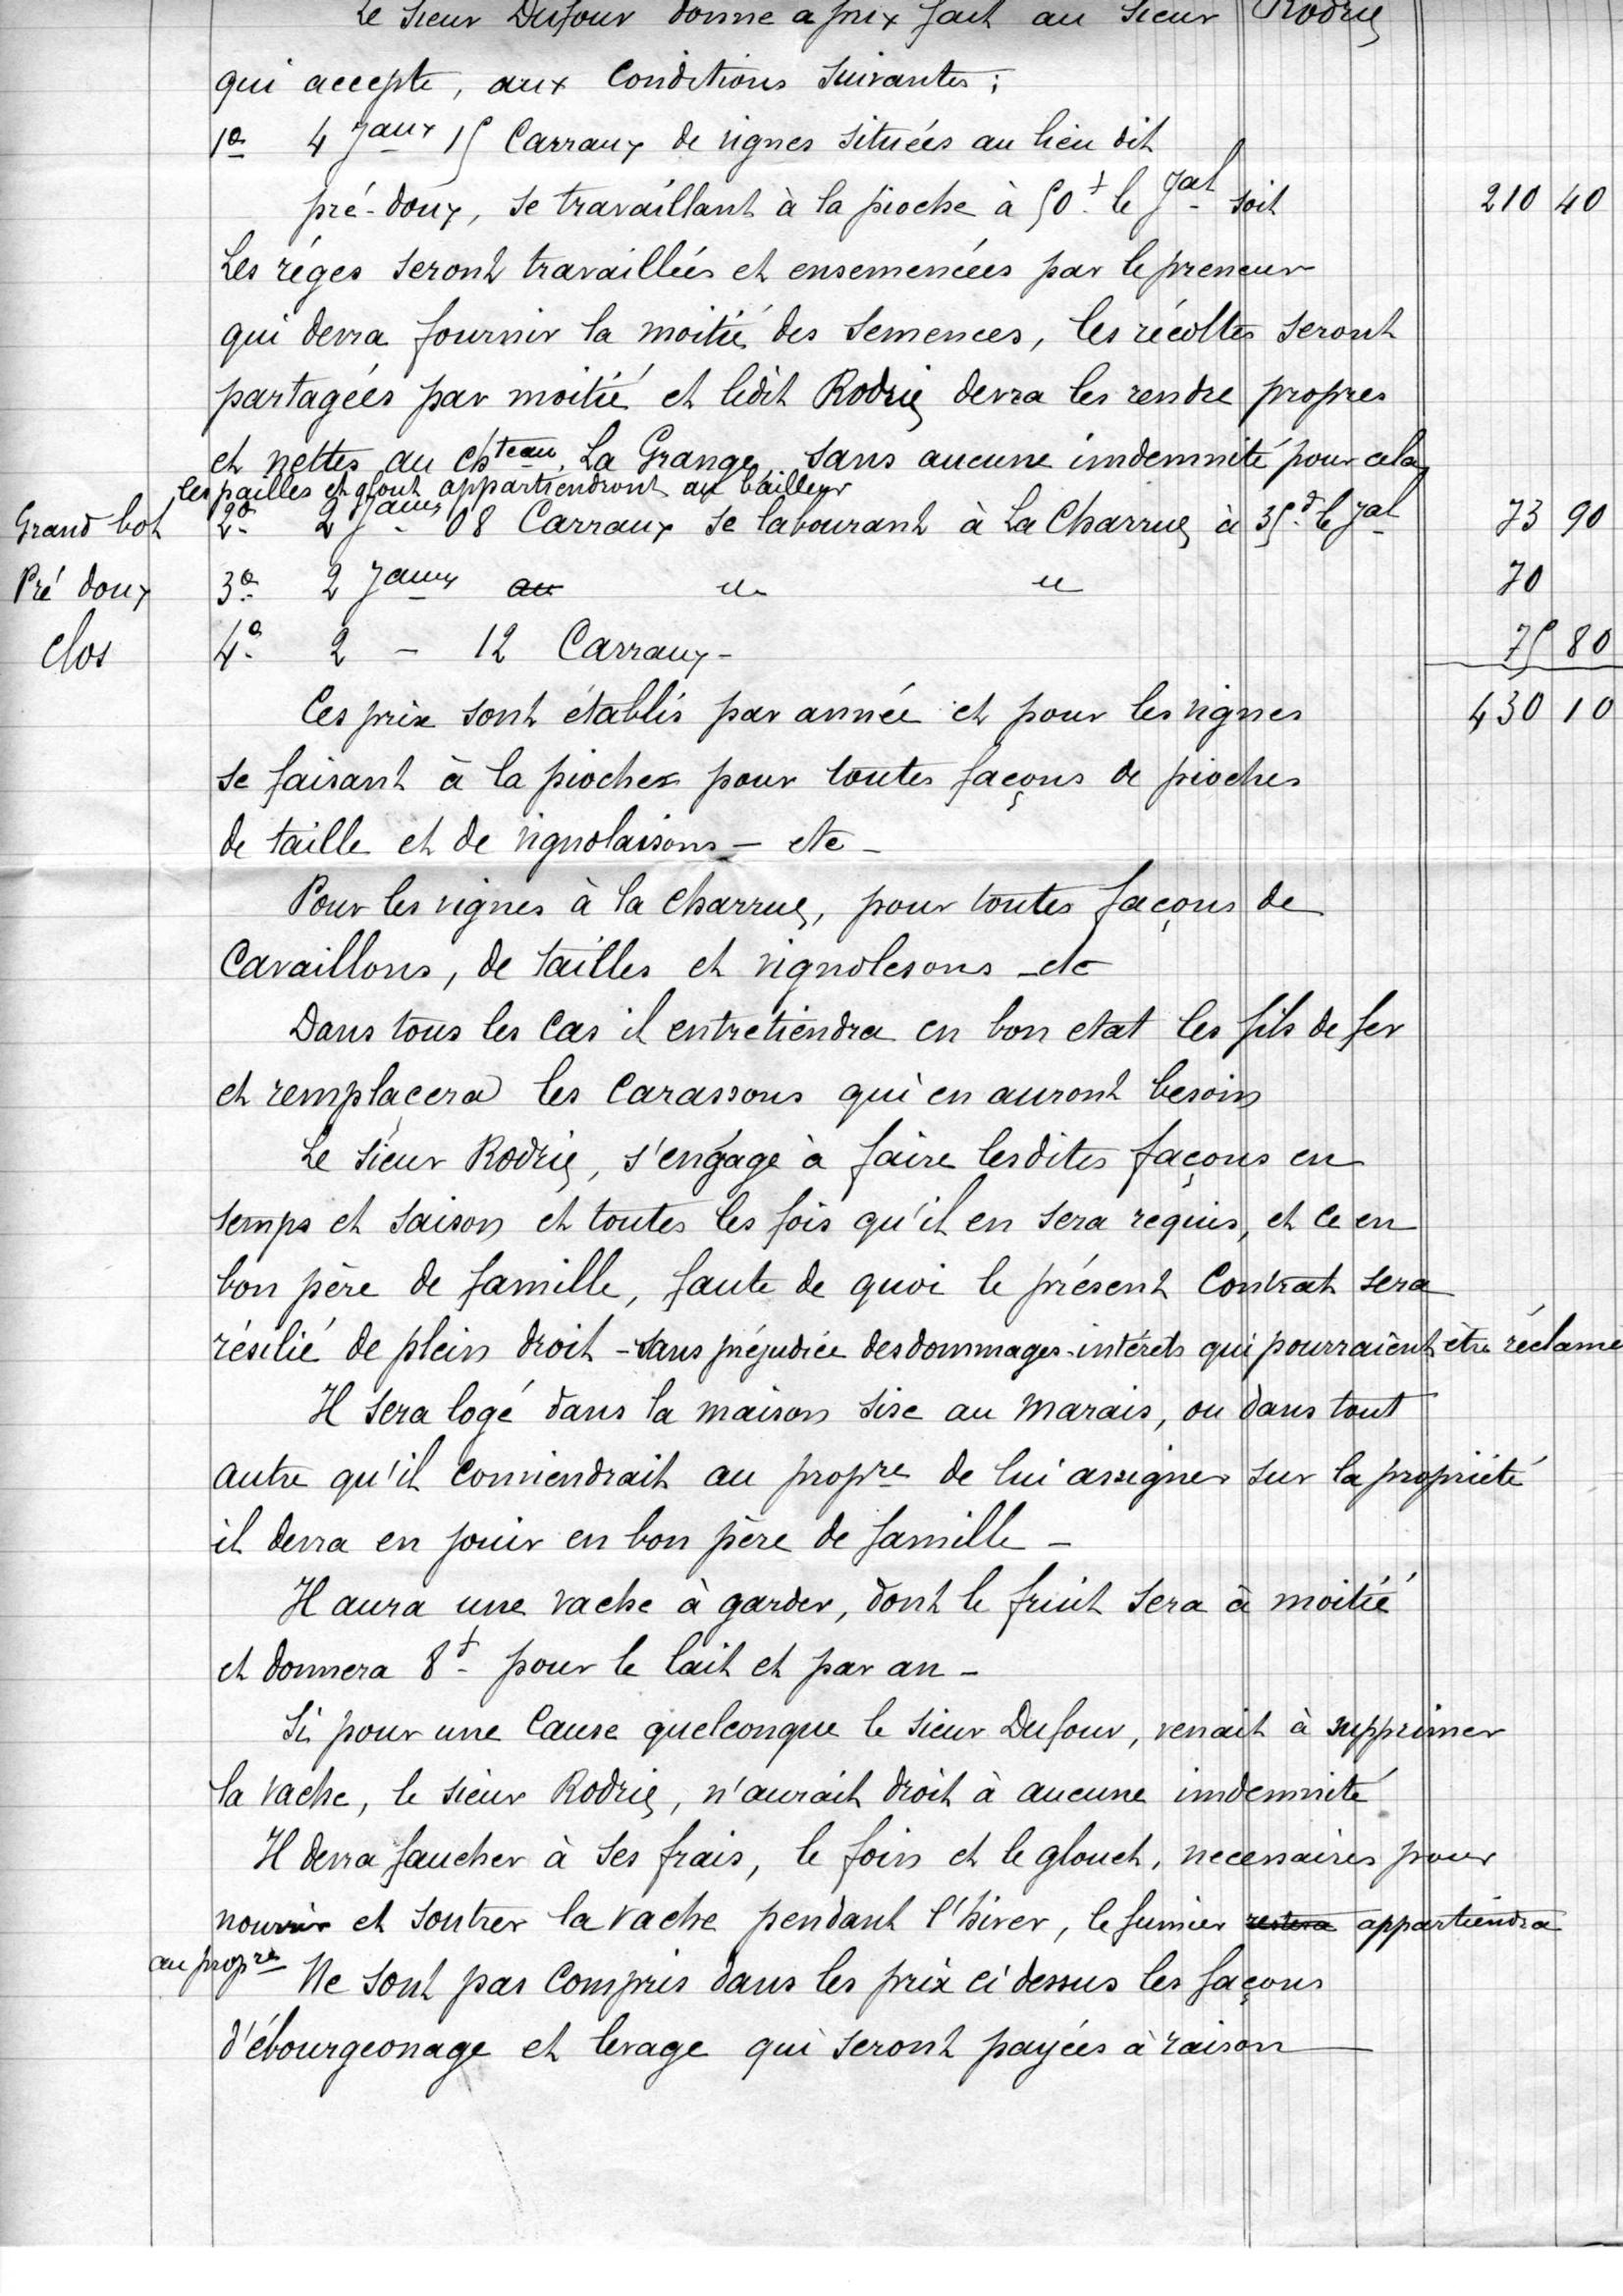 Le Sieur Dufour donne à prix fait au Sieur Rodrie
qui accepte, aux Conditions Suivantes :
1º 4 Jaux 15 Carraux de vignes situées au lieu dit
pré-doux, se travaillant à la pioche à 50f le Jal soit 210 40
Les réges seront travaillées et ensemencées par le preneur
qui devra fournir la moitié des Semences, les récoltes seront
partagées par moitié et ledit Rodrie devra les rendre propres
et nettes au chteau La Grange sans aucune indemnité pour cela,
les pailles et glout appartiendront au bailleur
Grand bot 2º 2 Jaux 08 Carraux se labourant à La Charrue à 35f le Jal 73 90
Pré doux 3º 2 Jaux au " " 70
Clos 4º 2 - 12 Carraux - 75 80
Ces prix sont établis par année et pour les vignes 430 10
se faisant à la pioche pour toutes façons de pioches
de taille et de vignolaisons - etc -
Pour les vignes à la Charrue, pour toutes façons de
Cavaillons, de tailles et vignolesons - etc
Dans tous les Cas il entretiendra en bon etat les fils de fer
et remplaçera les Carassons qui en auront besoin
Le Sieur Rodrie, s'engage à faire lesdites façons en
temps et saison et toutes les fois qu'il en sera requis, et ce en
bon père de famille, faute de quoi le présent Contrat sera
résilié de plein droit - sans préjudice des dommages-intérêts qui pourraient être réclamé
Il sera logé dans la maison sise au Marais, ou dans tout
autre qu'il conviendrait au propre de lui assigner sur la propriété
il devra en jouir en bon père de famille -
Il aura une vache à garder, dont le fruit sera à moitié
et donnera 8f pour le lait et par an -
Si pour une Cause quelconque le Sieur Dufour, venait à supprimer
la vache, le Sieur Rodrie, n'aurait droit à aucune indemnité
Il devra faucher à ses frais, le foin et le glouch, necessaires pour
nourrir et soutrer la vache pendant l'hiver, le fumier restera appartiendra
au propre Ne sont pas Compris dans les prix ci dessus les façons
d'ébourgeonage et levage qui seront payées à raison